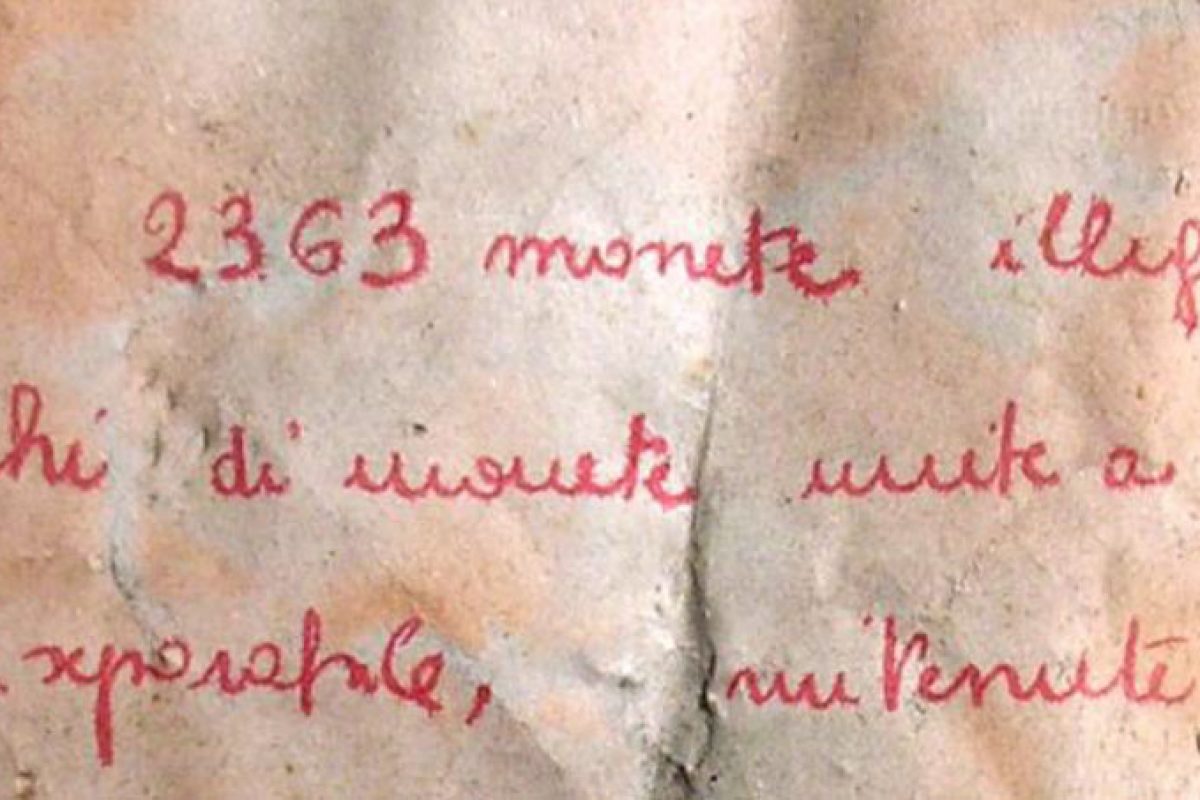 2363 monete illeg
chi di monete unite a
separabile, rinvenute